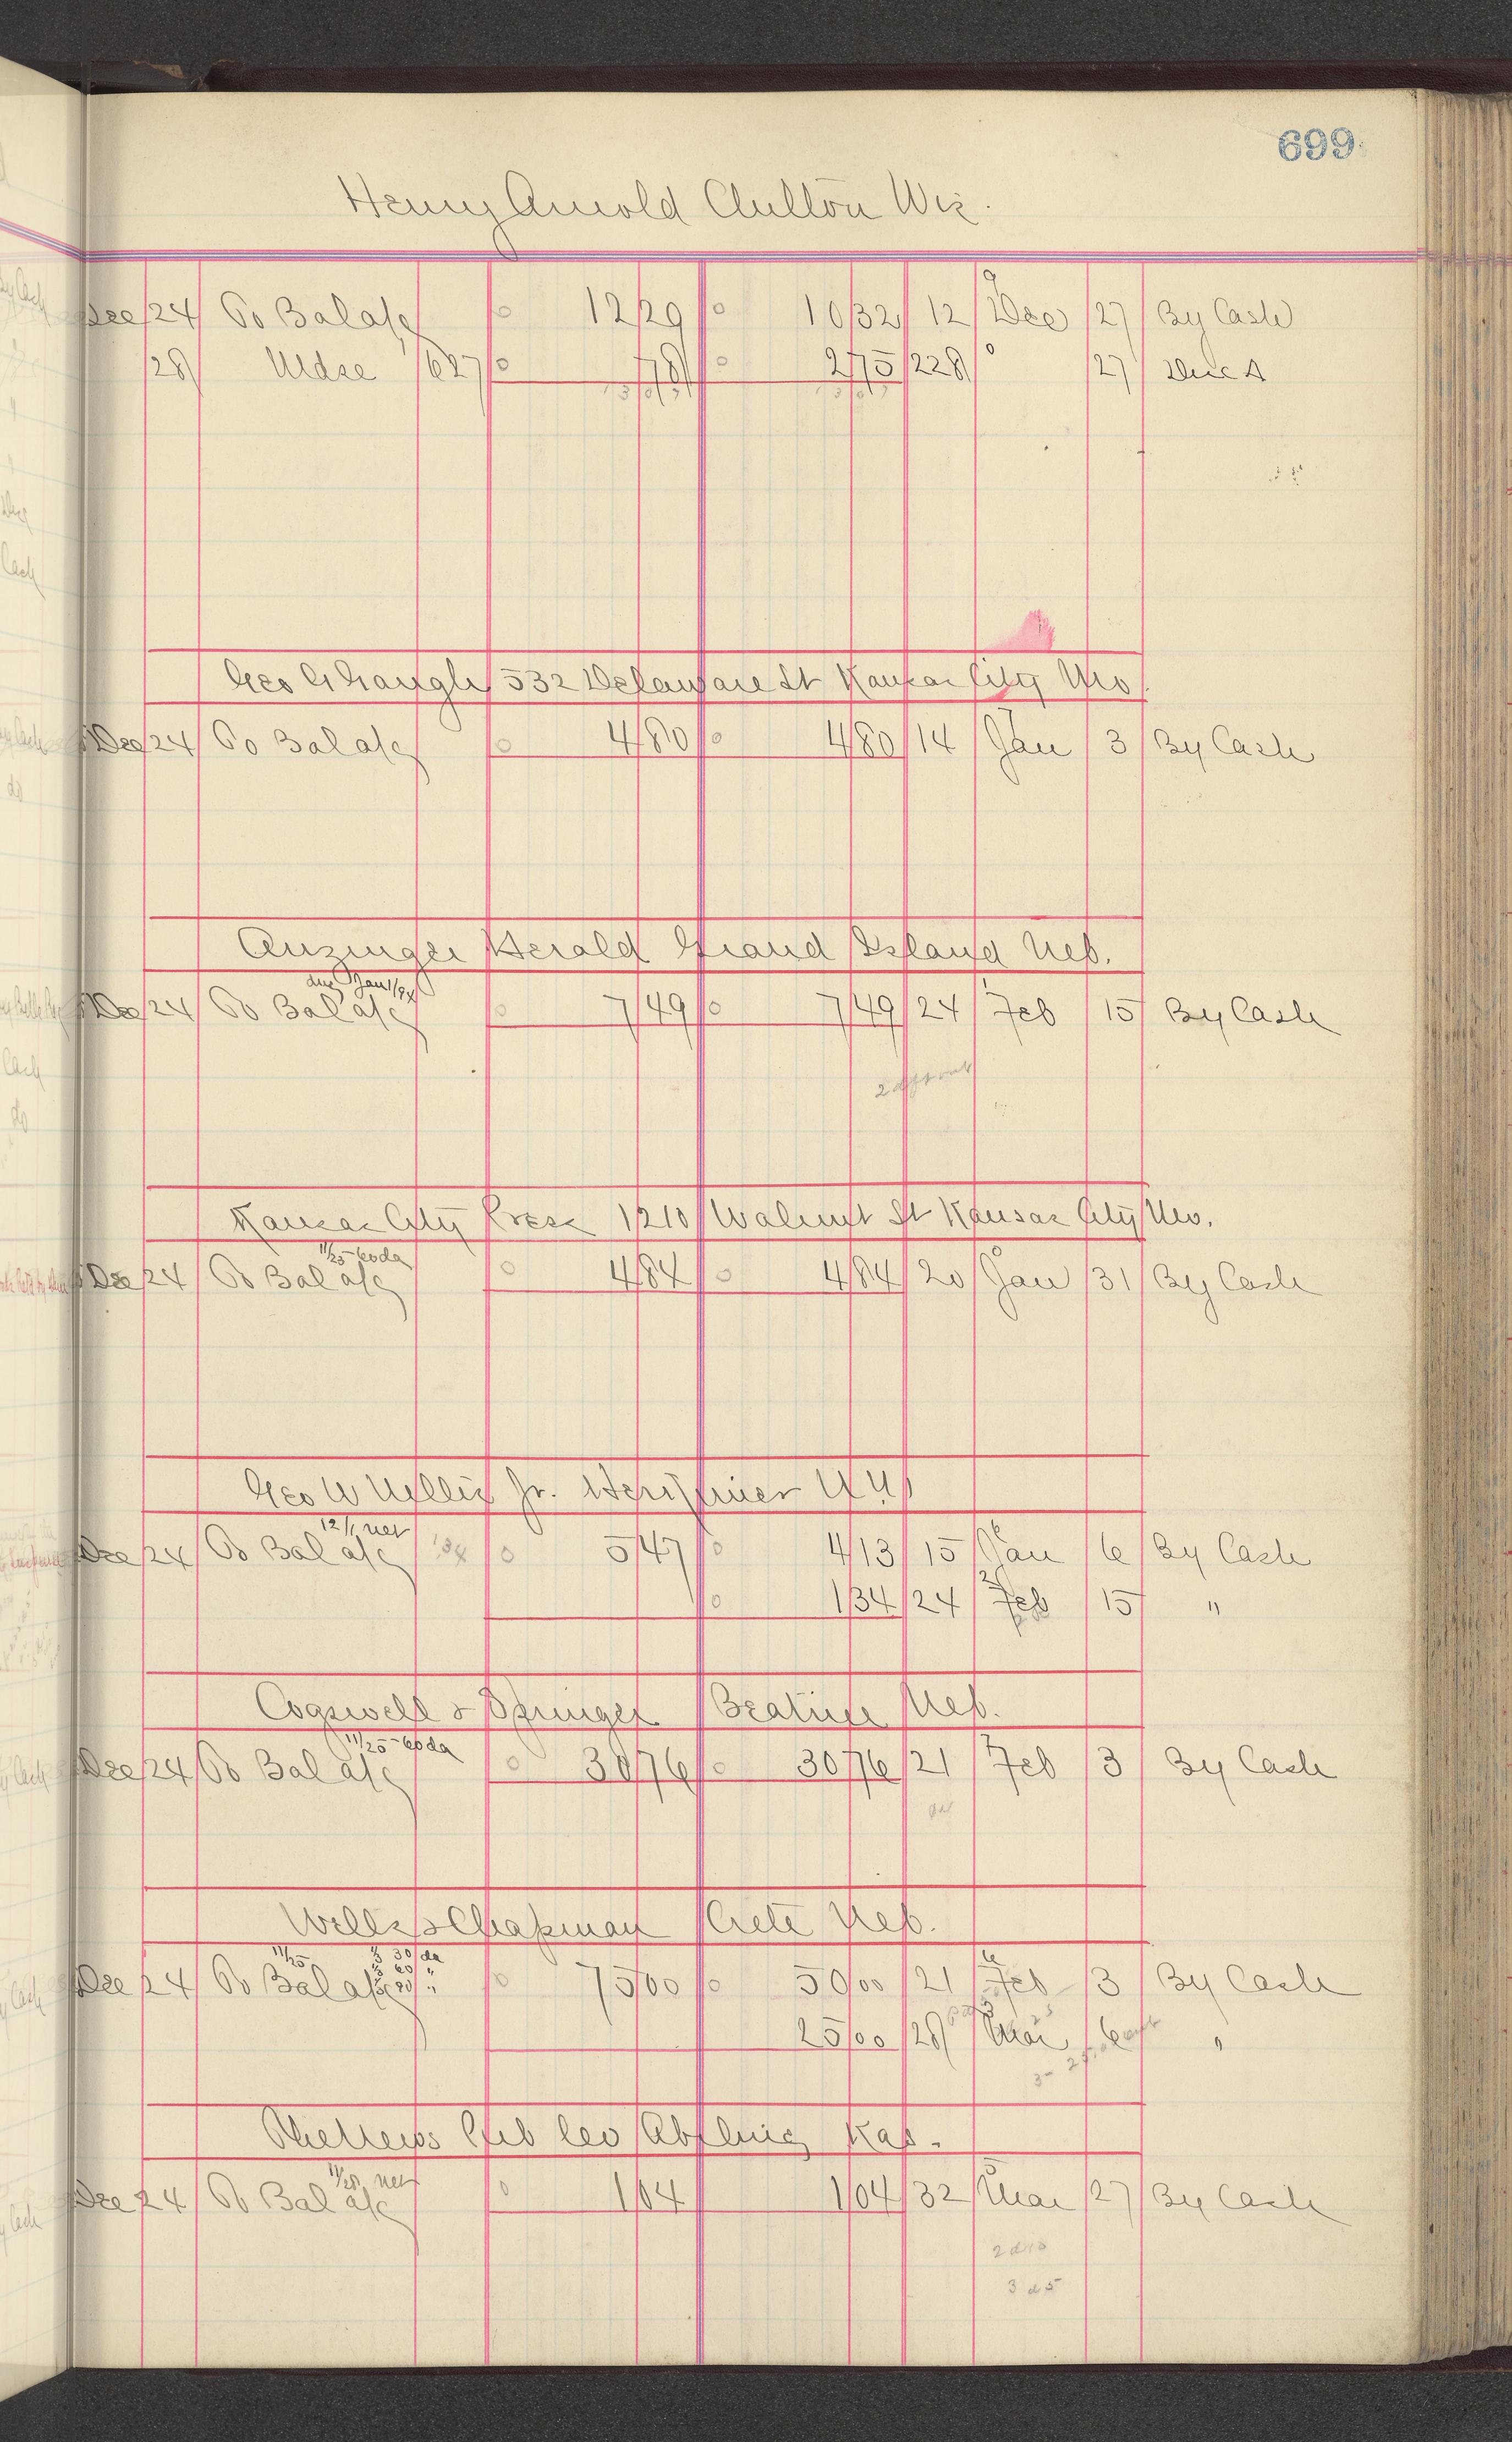 699
Henry Arnold Chilton Wis.
Dec 24 To Bal a/c 12 29 10 32 12 Dec 27 By Cash
28 Mdse 627 78 2 75 228 27 Disc
Geo 532 Delaware St Kansas City Mo
Dec 24 To Bal a/c 4 80 4 80 14 Jan 3 By Cash
Anzinger Herald Grand Island Neb.
due Jan 1/94
Dec 24 To Bal a/c 7 49 7 49 24 Feb 15 By Cash
Kansas City Press 1210 Walnut St Kansas City Mo.
11/25-60 da
Dec 24 To Bal a/c 4 84 4 84 20 Jan 31 By Cash
Geo W Nellis Jr. Herkimer N.Y.
12/1 net
Dec 24 To Bal a/c 134 5 47 4 13 15 Jan 6 By Cash
1 34 24 Feb 15 "
Cogswell & Springer Beatrice Neb.
11/25-60 da
Dec 24 To Bal a/c 30 76 30 76 21 Feb 3 By Cash
Wells & Chapman Crete Neb.
11/25 ⅓ 30 da
⅓ 60 "
Dec 24 To Bal a/c ⅓ 90 " 75 00 50 00 21 Feb 3 By Cash
25 00 28 Mar 6 "
Pub Co Abilene Kas.
11/25 net
Dec 24 To Bal a/c 1 04 1 04 32 Mar 27 By Cash